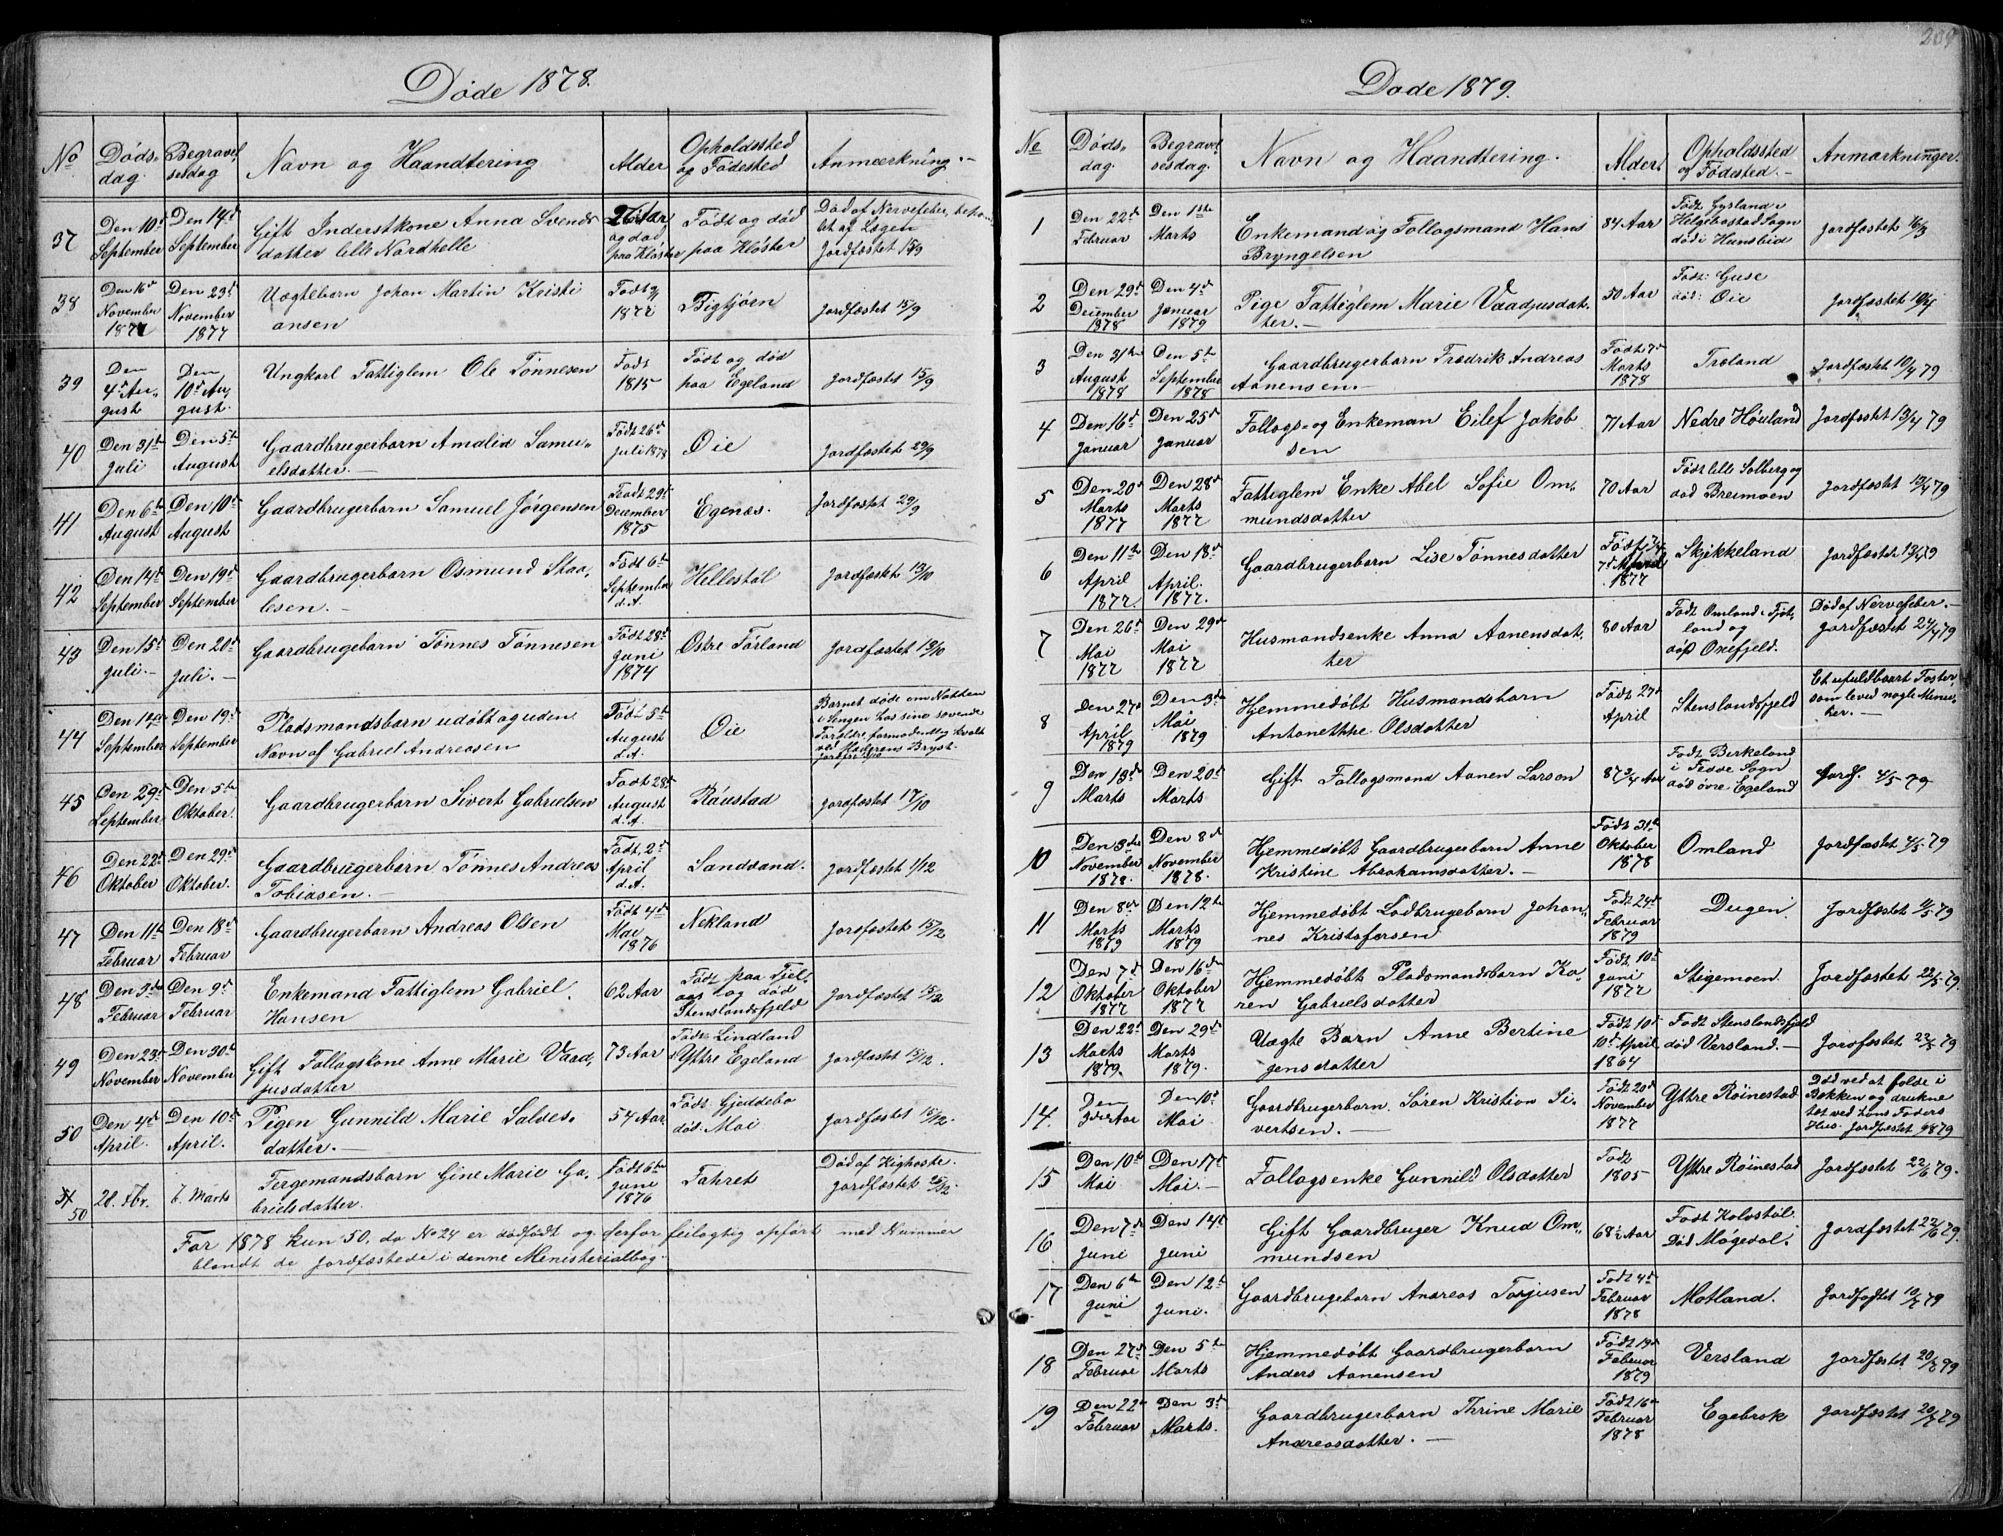 Døde 1878.
No Døds- dag. Begravel- sesdag Navn og Haandtering Alder Opholdssted og Fødested Anmærkning.-
37 Den 10de September Den 14de September Gift Inderstkone Anna Svends- datter lille Nordhelle 26 Aar og død paa Kloster Født og død paa Kloster Død af Nervefeber, af Lægen Jordfæstet 15/9
38 Den 16de November 1877 Den 23de November 1877 Uægtebarn Johan Martin Kristi ansen Født 1877 Bigtjørn Jordfæstet 15/9
39 Den 4de Au- gust Den 10de Au- gust. Ungkarl Fattiglem Ole Tønnesen Født 1815 Født og død paa Egeland Jordfæstet 15/9
40 Den 31te Juli Den 5te August Gaardbrugerbarn Amalia Samu- elsdatter.- Født 26de Juli 1878 Øie Jordfæstet 29/9
41 Den 6te August Den 10de August Gaardbrugerbarn Samuel Jørgensen Født 29de December 1875 Egenæs. Jordfæstet 29/9
42 Den 14de September Den 19de September Gaardbrugerbarn Osmund Staa- lesen.- Født 6te September d.A. Hellestøl Jordfæstet 13/10
43 Den 15de Juli.- Den 20de Juli.- Gaardbrugerbarn Tønnes Tønnesen Født 28de Juni 1874 Østre Førland Jordfæstet 13/10
44 Den 12te September Den 19de September Pladsmandsbarn udøbt og uden Navn af Gabriel Andreasen Født 5te August d.A. Øie Barnet døde om Natten i Sengen hos sine sovende Forældre, formodentlig kvalt ved Moderens Bryst.
45 Den 29de September Den 5te Oktober. Gaardbrugerbarn Sivert Gabrielsen Født 28de August d.A. Røiestad Jordfæstet 17/10
46 Den 22de Oktober Den 29de Oktober. Gaardbrugerbarn Tønnes Andreas Tobiasen.- Født 2de April d.A. Sandvand. Jordfæstet 1/12
47 Den 11te Februar Den 18de Februar Gaardbrugerbarn Andreas Olsen Født 4de Mai 1876 Nekland Jordfæstet 15/12
48 Den 3die Februar Den 9de Februar Enkemand Fattiglem Gabriel Hansen 62 Aar Født paa Fjel- aas og død Stenslandsfjeld Jordfæstet 15/12
49 Den 23de November Den 30te November Gift Follogskone Anne Marie Vaad- jusdatter 73 Aar Født Lindland Yttre Egeland Jordfæstet 15/12.
50 Den 4de April. Den 10de April. Pigen Gunnild Marie Salves- datter.- 54 Aar. Født: Gjeddebo død: Moi Jordfæstet 15/12.
51 50 28. Fbr. 6. Marts Fergemandsbarn Gine Marie Ga- brielsdatter. Født 6te Juni 1876 Fahret Død af Kighoste. Jordfæstet 12.
For 1878 kun 50, da No 24 er dødfødt og derfor feilagtig opført med Nummer
blandt de Jordfæstede i denne Ministerialbog.
Døde 1879.
No Døds- dag. Begravel- sesdag. Navn og Haandtering. Alder. Opholdssted og Fødested.- Anmærkninger.
1 Den 22de Februar Den 1ste Marts Enkemand og Follogsmand Hans Bryngelsen 84 Aar Født: Gysland i Helgebostad Sogn død i Hunsbid Jordfæstet 16/3
2 Den 29de December 1878 Den 4de Januar 1879 Pige Fattiglem Marie Vaadjusdat- ter.- 50 Aar Født: Guse død: Øie Jordfæstet 10/4
3 Den 31te August 1878 Den 5te September 1878 Gaardbrugerbarn Fredrik Andreas Aanensen.- Født 7de Marts 1878 Troland Jordfæstet 10/4 79
4 Den 16de Januar Den 25de Januar Follogs- og Enkeman Eilef Jakob sen 71 Aar Nedre Høiland Jordfæstet 13/4 79
5 Den 20de Marts 1877 Den 28de Marts 1877 Fattiglem Enke Abel Sofie Om- mundsdatter 70 Aar Født lille Solberg og død Breimoen Jordfæstet 13/4 79
6 Den 11te April 1877. Den 18de April. 1877. Gaardbrugerbarn Lise Tønnesdatter Født 7de 1877 Skjekkeland Jordfæstet 13/4 79
7 Den 26de Mai 1877 Den 29de Mai 1877 Husmandsenke Anna Aanensdat- ter 80 Aar Født Omland i Fjot- land og død Onefjeld. Død af Nervefeber. Jordfæstet 24/4 79
8 Den 27de April 1879 Den 3die Mai 1879 Hjemmedøbt Husmandsbarn Antonethe Olsdatter Født 27de April Stenslandsfjeld Et ufuldbaart Foster som leved nogle Minu- ter.-
9 Den 13de Marts Den 20de Marts Gift Follogsmand Aanen Larson 87 3/4 Aar Født Birkeland i Fedde Sogn død øvre Egeland Jordf. 4/5 79
10 Den 3die November 1878. Den 8de November 1878. Hjemmedøbt Gaardbrugerbarn Anne Kristine Abrahamsdatter.- Født 31te Oktober 1878 Omland Jordfæstet 4/5 79
11 Den 8de Marts 1879 Den 12te Marts 1879 Hjemmedøbt Lodbrugebarn Johan- nes Kristofersen Født 24de Februar 1879 Dugen. Jordfæstet 11/5 79
12 Den 7de Oktober 1877 Den 16de Oktober 1877 Hjemmedøbt Pladsmandsbarn Ka- ren Gabrielsdatter Født 10de Juni 1877 Stigemoen Jordfæstet 22/5 79.
13 Den 22de Marts 1879. Den 29de Marts 1879. Uægte Barn Anne Bertine Jensdatter Født 10de 10de April 1864 Født Stenslandsfjeld død Versland.- Jordfæstet 22/5 79
14. Den Den 10de Mai Gaardbrugerbarn. Søren Kristian Si- vertsen.- Født 20de November 1877 Yttre Røinestad Død ved at falde i Bækken og drukne tet ved hans Faders Hus. Jordfæstet
15 Den 10de Mai Den 17de Mai.- Follogsenke Gunnild Olsdatter Født 1805 Yttre Røinestad Jordfæstet 22/6 79.
16 Den 7de Juni Den 14de Juni Gift Gaardbruger Knud Om- mundsen 68 1/2 Aar Født Kolostøl. Død Mogedal. Jordfæstet 22/6 79.
17 Den 6te Juni Den 12te Juni. Gaardbrugebarn Andreas Torjusen Født 4de Februar 1878 Motland. Jordfæstet 10/7 79
18 Den 27de Februar Den 5te Marts Hjemmedøbt Gaardbrugerbarn Anders Aanensen Født 19de Februar 1879 Versland Jordfæstet 20/7 79
19 Den 22de Februar Den 3de Marts. Gaardbrugerbarn Thrine Marie Andreasdatter.- Født 16de Februar 1878 Egebrok Jordfæstet 20/7 79